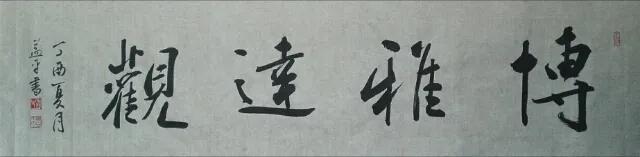 博雅達觀
丁酉夏月
益平書